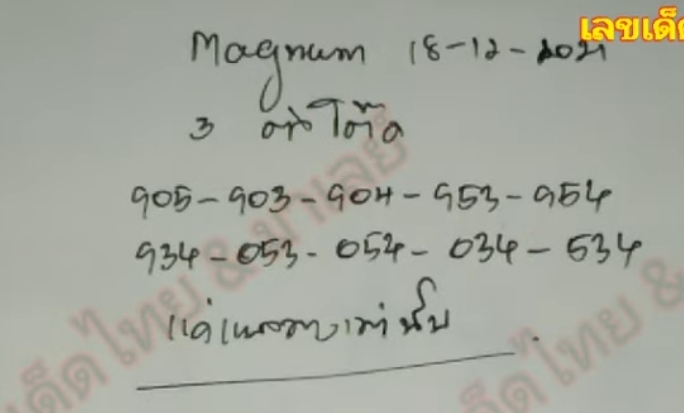 เลขเด็ด
Magnum 18-12-2021
3 ตัวโต๊ด
905-903-904-953-954
934-053-054-034-534
เด็ดไทย & มาเลย์
ด็ดไทย &